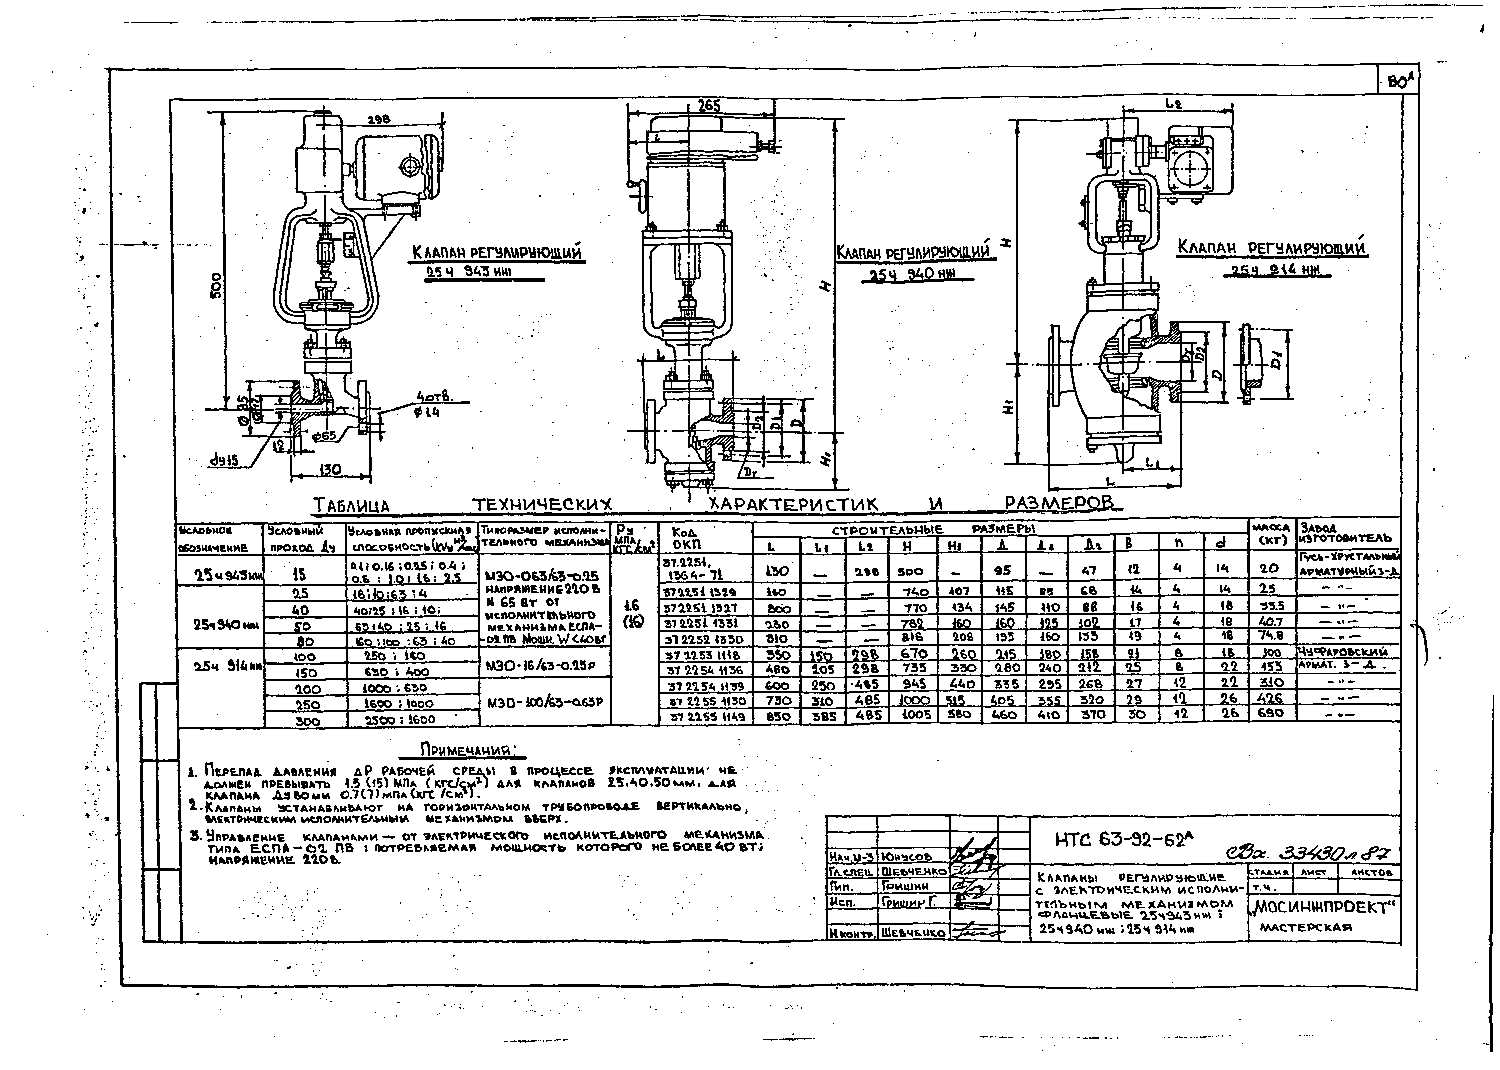 80А
298
265
L2
Клапан регулирующий
25ч 943 нж
Клапан регулирующий
25ч 940 нж
Клапан регулирующий
25ч 914 нж
500
H
H
H1
H1
L
4 отв.
ф 14
ф 95
ф 65
dу 15
12
130
D2
D1
D
Dу
Dу
D2
D
D1
L1
L
Таблица технических характеристик и размеров
Условное обозначение | Условный проход Ду | Условная пропускная способность (Kvy м³/час) | Типоразмер исполнительного механизма | Ру МПа/(кгс/см²) | Код ОКП | Строительные размеры | Масса (кг) | Завод изготовитель
L | L1 | L2 | H | H1 | Д | Д1 | Д2 | В | n | d
25ч 943 нж | 15 | 0.1; 0.16; 0.25; 0.4; 0.6; 1.0; 1.6; 2.5 | МЭО-0.63/63-0.25 | 37.2251, 1364-71 | 130 | — | 298 | 500 | — | 95 | — | 47 | 12 | 4 | 14 | 20 | Гусь-Хрустальный арматурный з-д
напряжение 220 В N 65 Вт от исполнительного механизма ЕСПА-02 ПВ Мощн. W<40 Вт
1.6 (16)
25ч 940 нж | 25 | 16; 10; 6.3; 4 | 37 2251 1329 | 160 | — | — | 740 | 107 | 115 | 85 | 68 | 14 | 4 | 14 | 25 | — " —
40 | 40; 25; 16; 10; | 37 2251 1327 | 200 | — | — | 770 | 134 | 145 | 110 | 88 | 16 | 4 | 18 | 33.5 | — " —
50 | 63; 40; 25; 16 | 37 2251 1331 | 230 | — | — | 782 | 160 | 160 | 125 | 102 | 17 | 4 | 18 | 40.7 | — " —
80 | 160; 100; 63; 40 | 37 2252 1330 | 310 | — | — | 816 | 208 | 195 | 160 | 133 | 19 | 4 | 18 | 74.8 | — " —
25ч 914 нж | 100 | 250; 160 | МЭО-16/63-0.25Р | 37 2253 1118 | 350 | 150 | 298 | 670 | 260 | 215 | 180 | 158 | 21 | 8 | 18 | 100 | Чуфаровский
150 | 630; 400 | 37 2254 1136 | 480 | 205 | 298 | 735 | 330 | 280 | 240 | 212 | 25 | 8 | 22 | 153 | армат. з-д.
200 | 1000; 630 | МЭО-100/63-0.63Р | 37 2254 1139 | 600 | 250 | 485 | 945 | 440 | 335 | 295 | 268 | 27 | 12 | 22 | 310 | — " —
250 | 1600; 1000 | 37 2255 1130 | 730 | 310 | 485 | 1000 | 515 | 405 | 355 | 320 | 29 | 12 | 26 | 426 | — " —
300 | 2500; 1600 | 37 2255 1149 | 850 | 385 | 485 | 1005 | 580 | 460 | 410 | 370 | 30 | 12 | 26 | 690 | — " —
Примечания:
1. Перепад давления ΔР рабочей среды в процессе эксплуатации не
должен превывать 1.5 (15) МПа (кгс/см²) для клапанов 25, 40, 50 мм, для
клапана Ду 80 мм 0.7 (7) МПа (кгс/см²).
2. Клапаны устанавливают на горизонтальном трубопроводе вертикально,
электрическим исполнительным механизмом вверх.
3. Управление клапанами — от электрического исполнительного механизма
типа ЕСПА-02 ПВ; потребляемая мощность которого не более 40 Вт;
напряжение 220 В.
НТС 63-92-62А
Вх. 33430 л 87
Нач. М-3 Юнусов
Гл. спец. Шевченко
Гип. Гришин
Исп. Гришин Г.
Н. контр. Шевченко
Клапаны регулирующие
с электрическим исполни-
тельным механизмом
фланцевые 25ч943 нж;
25ч940 нж; 25ч 914 нж
стадия лист листов
т.ч.
"МОСИНЖПРОЕКТ"
мастерская